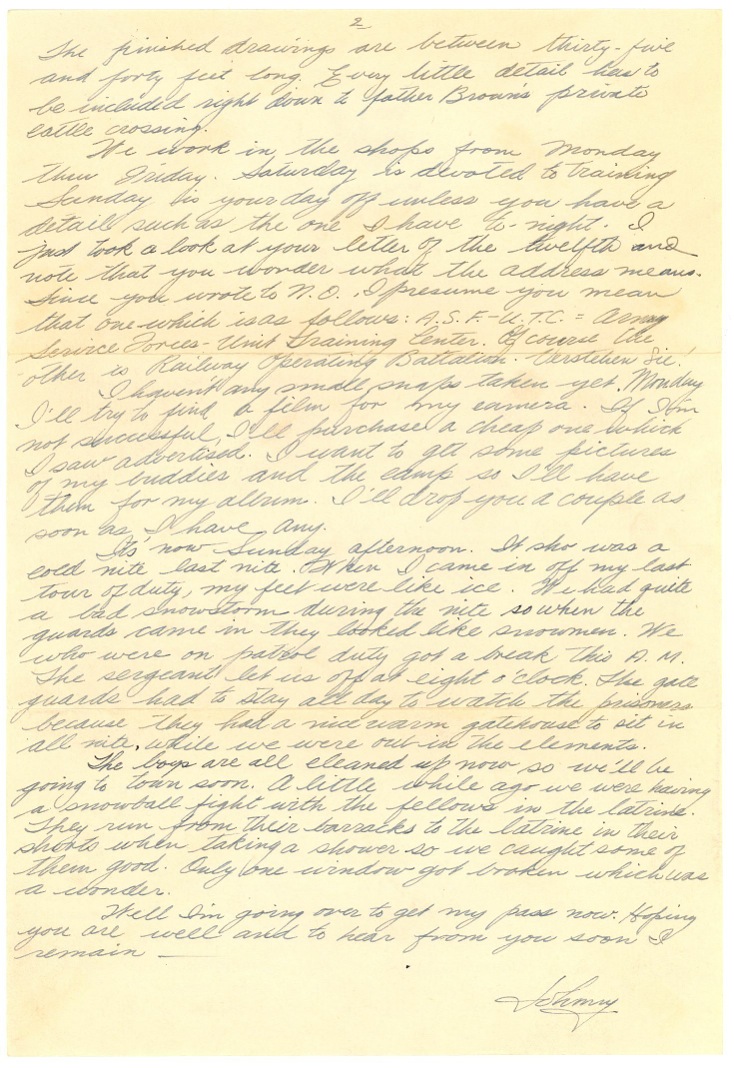 2
The finished drawings are between thirty-five
and forty feet long. Every little detail has to
be included right down to father Brown's private
cattle crossing.
We work in the shops from Monday
thru Friday. Saturday is devoted to training
Sunday is your day off unless you have a
detail such as the one I have to-night. I
just took a look at your letter of the twelfth and
note that you wonder what the address means.
Since you wrote to N.O. I presume you mean
that one which is as follows: A.S.F.-U.T.C. = Army
Service Forces - Unit Training Center. Of course the
other is Railway Operating Battalion. Verstehen Sie!
I havent any small snaps taken yet. Monday
I'll try to find a film for my camera. If I'm
not successful, I'll purchase a cheap one which
I saw advertised. I want to get some pictures
of my buddies and the camp so I'll have
them for my album. I'll drop you a couple as
soon as I have any.
It's now Sunday afternoon. It sho was a
cold nite last nite. When I came in off my last
tour of duty, my feet were like ice. We had quite
a bad snowstorm during the nite so when the
guards came in they looked like snowmen. We
who were on patrol duty got a break this A.M.
The sergeant let us off at eight o'clock. The gate
guards had to stay all day to watch the prisoners
because they had a nice warm gatehouse to sit in
all nite, while we were out in the elements.
The boys are all cleaned up now so we'll be
going to town soon. A little while ago we were having
a snowball fight with the fellows in the latrine.
They run from their barracks to the latrine in their
shorts when taking a shower so we caught some of
them good. Only one window got broken which was
a wonder.
Well I'm going over to get my pass now. Hoping
you are well and to hear from you soon I
remain —
Johnny